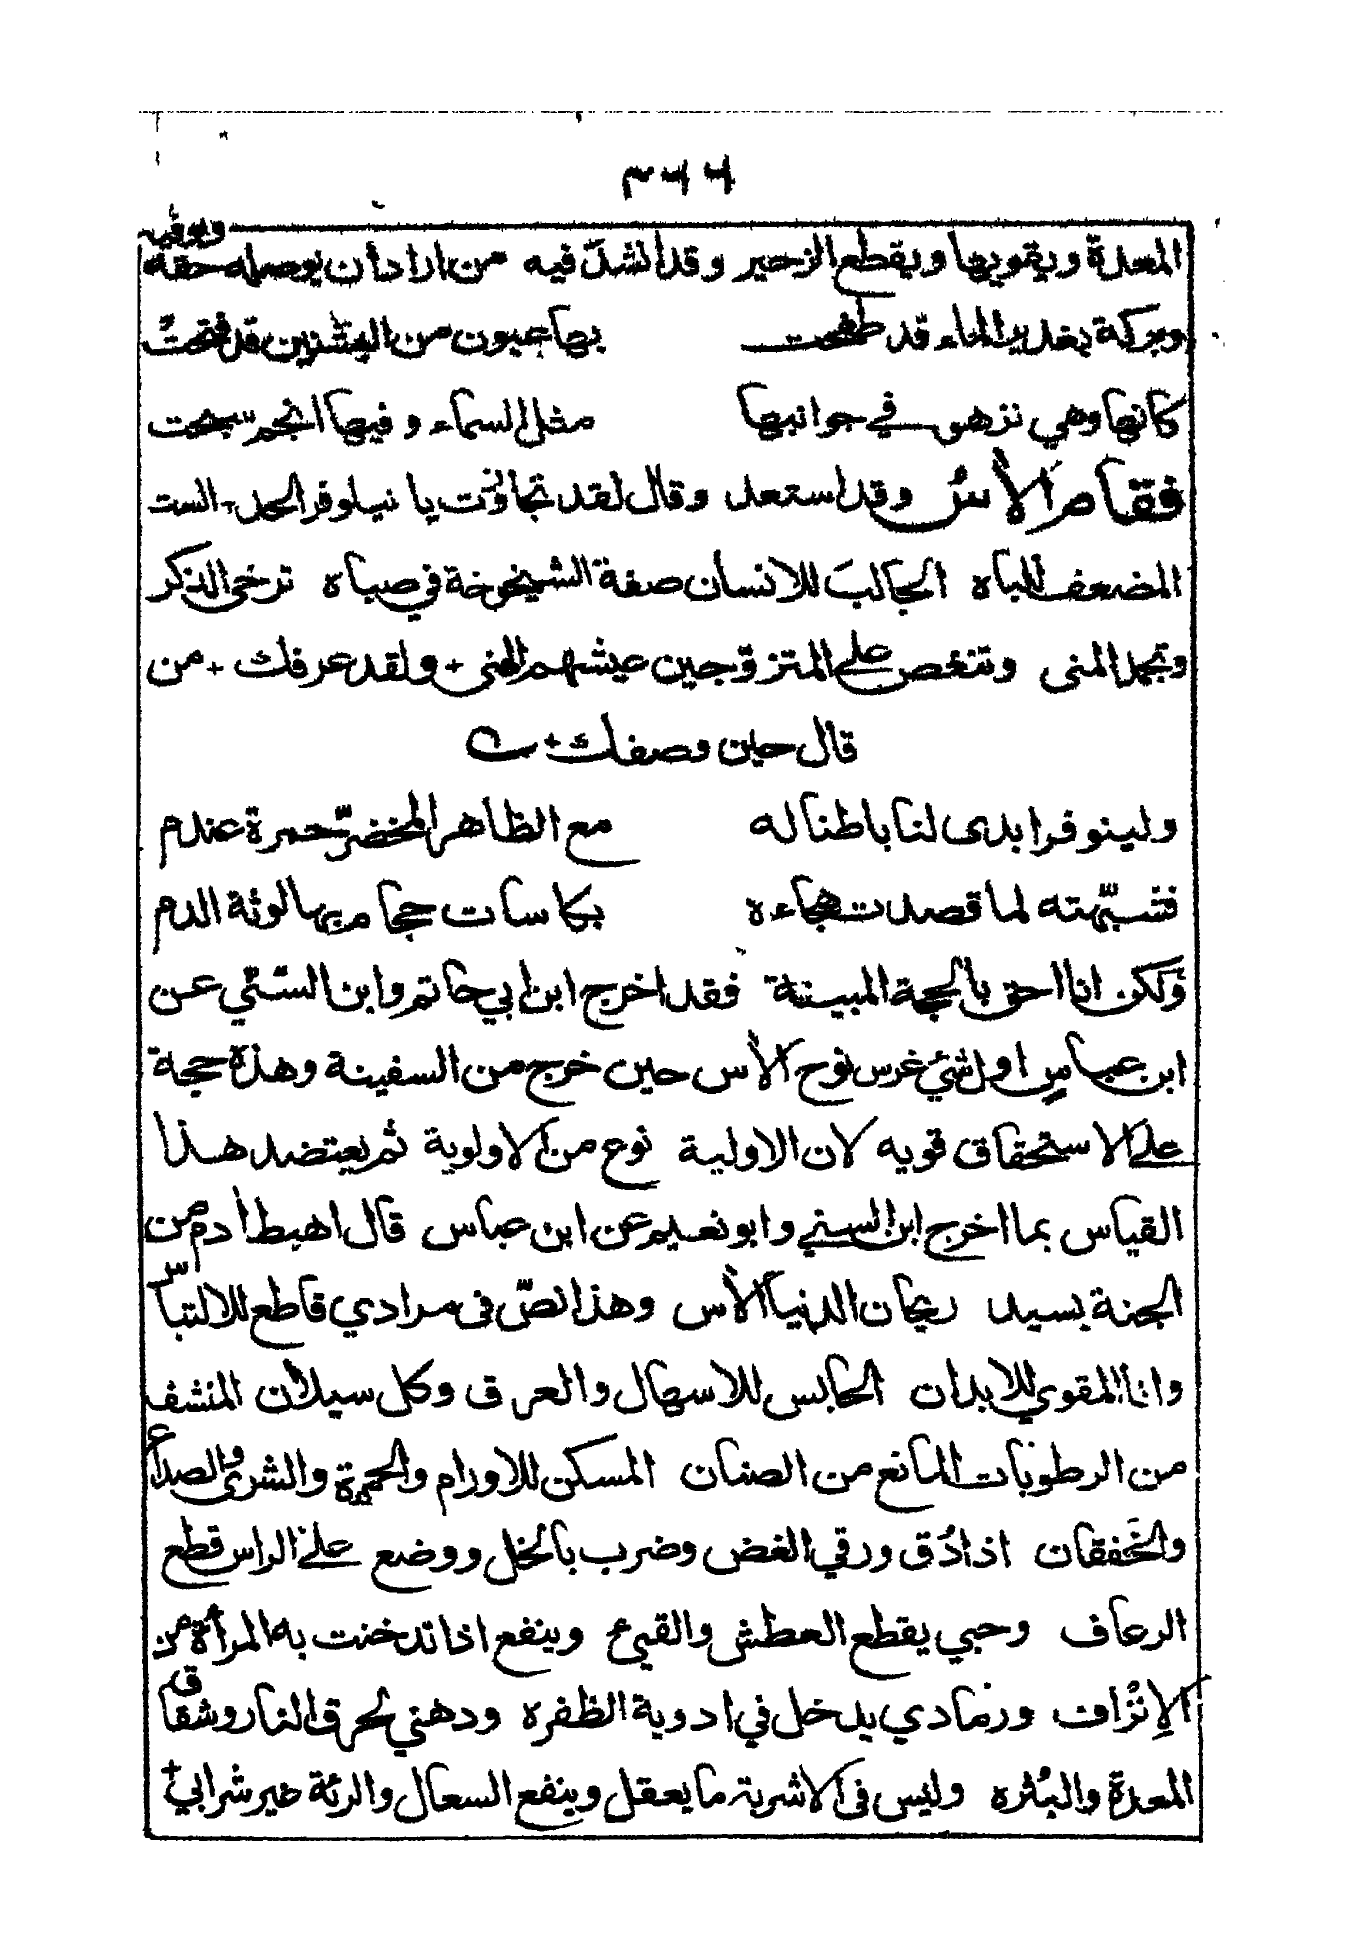 ٣٦٦
المعدة ويقويها ويقطع الزحير وقد انشد فيه من اراد أن يوصله حقه ويوفيه
وبركة بغدير الماء قد طفحت بها عيون من البشنين قد فتحت
كانها وهي تزهو في جوانبها مثل السماء وفيها انجم سبحت
فقام الآس وقد استعد وقال لقد تجاوزت يا نيلوفر الحد + الست
المضعف للباه الجالب للانسان صفة الشيخوخة في صباه ترخي الذكر
وتجمد المنى وتنغص على المتزوجين عيشهم الهنى + ولقد عرفك + من
قال حين وصفك +
ولينوفر ابدى لنا باطنا له مع الظاهر المخضر حمرة عندم
فشبهته لما قصدت هجاءه بكاسات حجام بها لوثة الدم
ولكن انا احق بالحجة المبينة فقد اخرج ابن ابي حاتم وابن السني عن
ابن عباس اول شئ غرس نوح الآس حين خرج من السفينة وهذه حجة
على الاستحقاق قويه لان الاولية نوع من الاولوية ثم يعتضد هذا
القياس بما اخرج ابن السني وابو نعيم عن ابن عباس قال اهبط أدم من
الجنة بسيد ريحان الدنيا الآس وهذا نص في مرادي قاطع للالتباس
وانا المقوي للابدان الحابس للاسهال والعرق وكل سيلان المنشف
من الرطوبات المانع من الصنان المسكن للاورام والحمرة والشرى والصداع
والخفقان اذا دُق ورقي الغض وضرب بالخل ووضع على الراس قطع
الرعاف وحبي يقطع العطش والقيئ وينفع اذا تدخنت به المرأة من
الإنزاف ورمادي يدخل في ادوية الظفره ودهني لحرق النار وشقاق
المعدة والبثره وليس في الاشربة ما يعقل وينفع السعال والرئة غير شرابي +